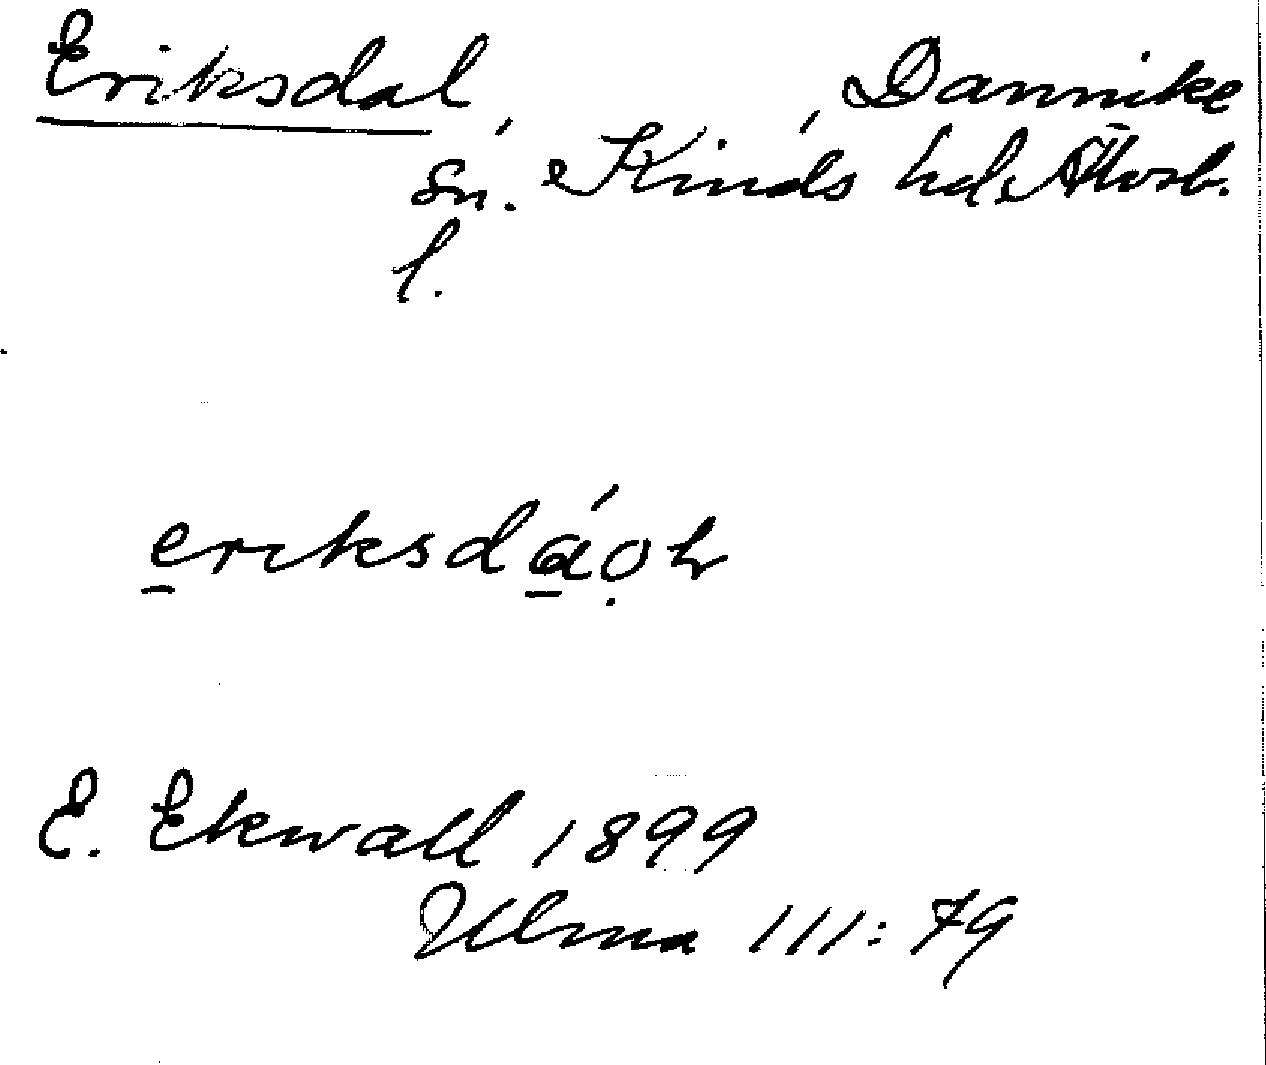 Eriksdal, Dannike
sn. Kinds hd, Älvsb.
l.
eriksdáọl
E. Ekwall 1899
Ulma 111:79